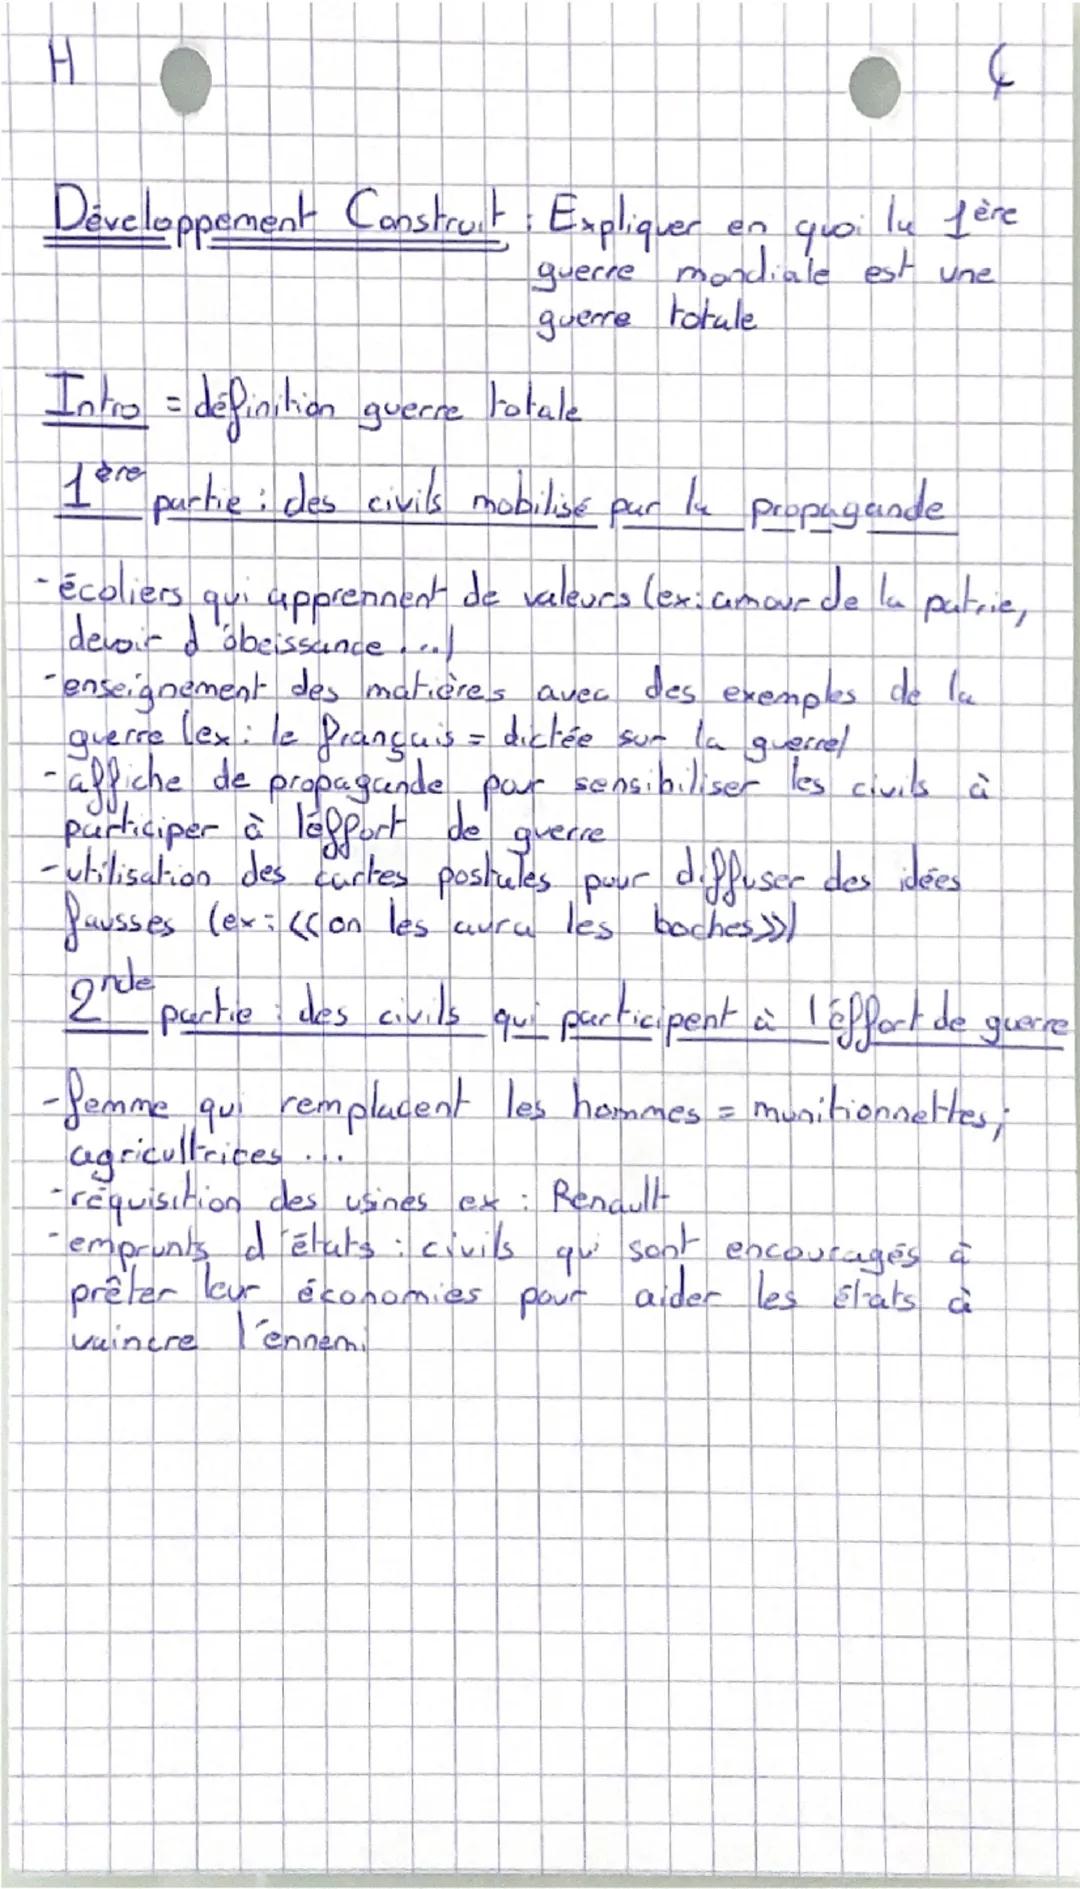 H
Développement Construit : Expliquer en quoi la 1ère
guerre mondiale est une
guerre totale
Intro = définition guerre totale
1ère partie : des civils mobilisé par la propagande
- écoliers qui apprennent de valeurs (ex: amour de la patrie,
devoir d'obeissance ...)
- enseignement des matières avec des exemples de la
guerre (ex : le français = dictée sur la guerre)
- affiche de propagande pour sensibiliser les civils à
participer à l'éffort de guerre
- utilisation des cartes postales pour diffuser des idées
fausses (ex : <<on les aura les boches>>)
2nde partie : des civils qui participent à l'éffort de guerre
- femme qui remplacent les hommes = munitionnettes,
agricultrices ...
- réquisition des usines ex : Renault
- emprunts d'états : civils qui sont encouragés à
prêter leur économies pour aider les états à
vaincre l'ennemi